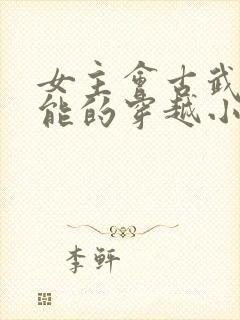 女主会古武
能的穿越小
李轩